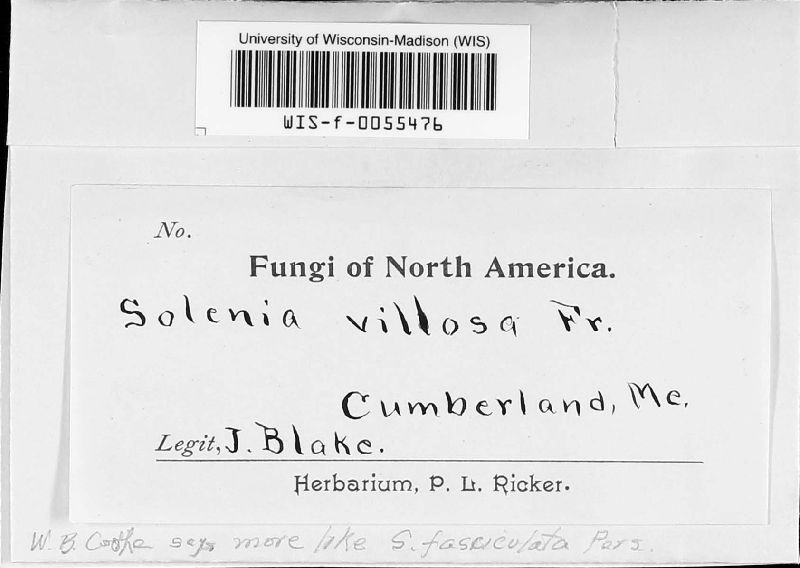 University of Wisconsin-Madison (WIS)
WIS-f-0055476
No.
Fungi of North America.
Solenia villosa Fr.
Cumberland, Me.
Legit, J. Blake.
Herbarium, P. L. Ricker.
W. B. Cooke says more like S. fasciculata Pers.